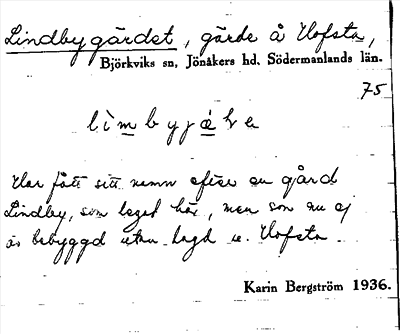 Lindbygärdet, gärde å Hofsta,
Björkviks sn, Jönåkers hd. Södermanlands län.
75
Har fått sitt namn efter en gård
Lindby, som legat här, men som nu ej
är bebyggd utan lagd u. Hofsta.
Karin Bergström 1936.